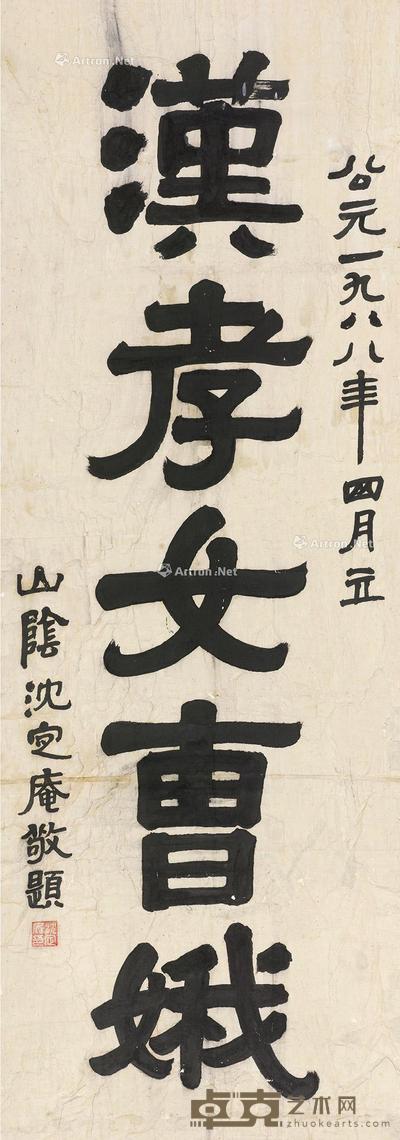 公元一九八八年四月立
漢孝女曹娥
山陰沈定庵敬題
Artron.Net
Artron.Net
Artron.Net
卓克艺术网
zhuokearts.com